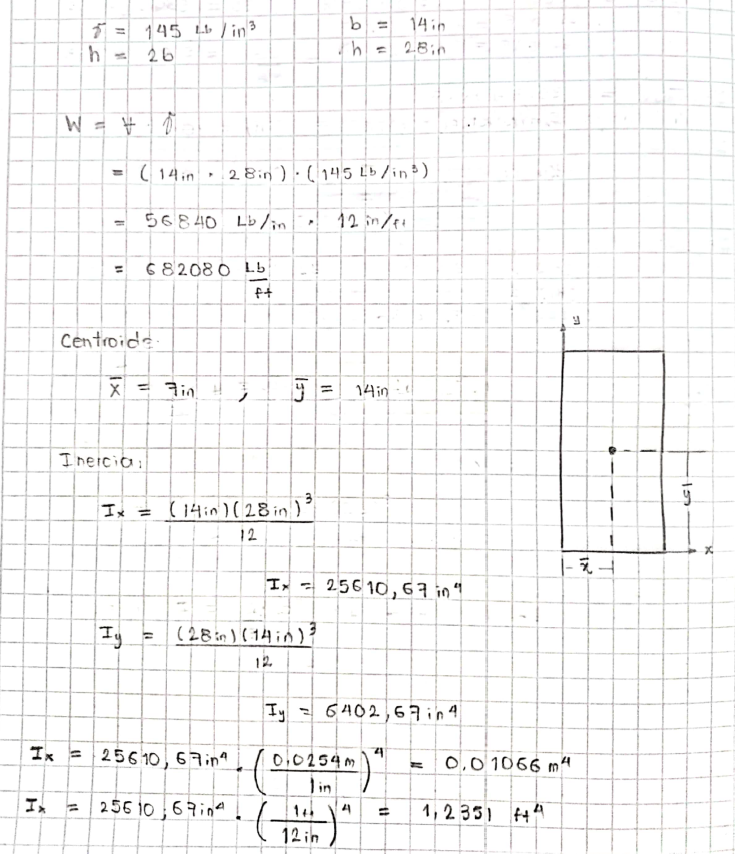 γ = 145 Lb/in³ b = 14in
h = 2b h = 28in
W = V · γ
= (14in · 28in) · (145 Lb/in³)
= 56840 Lb/in · 12 in/ft
= 682080 Lb/ft
Centroide.
x̄ = 7in ; ȳ = 14in
Inercia:
Ix = (14in)(28in)³ / 12
Ix = 25610,67 in⁴
Iy = (28in)(14in)³ / 12
Iy = 6402,67in⁴
Ix = 25610,67in⁴ · (0,0254m / 1in)⁴ = 0,01066 m⁴
Ix = 25610,67in⁴ · (1ft / 12in)⁴ = 1,2351 ft⁴
y
ȳ
x
x̄